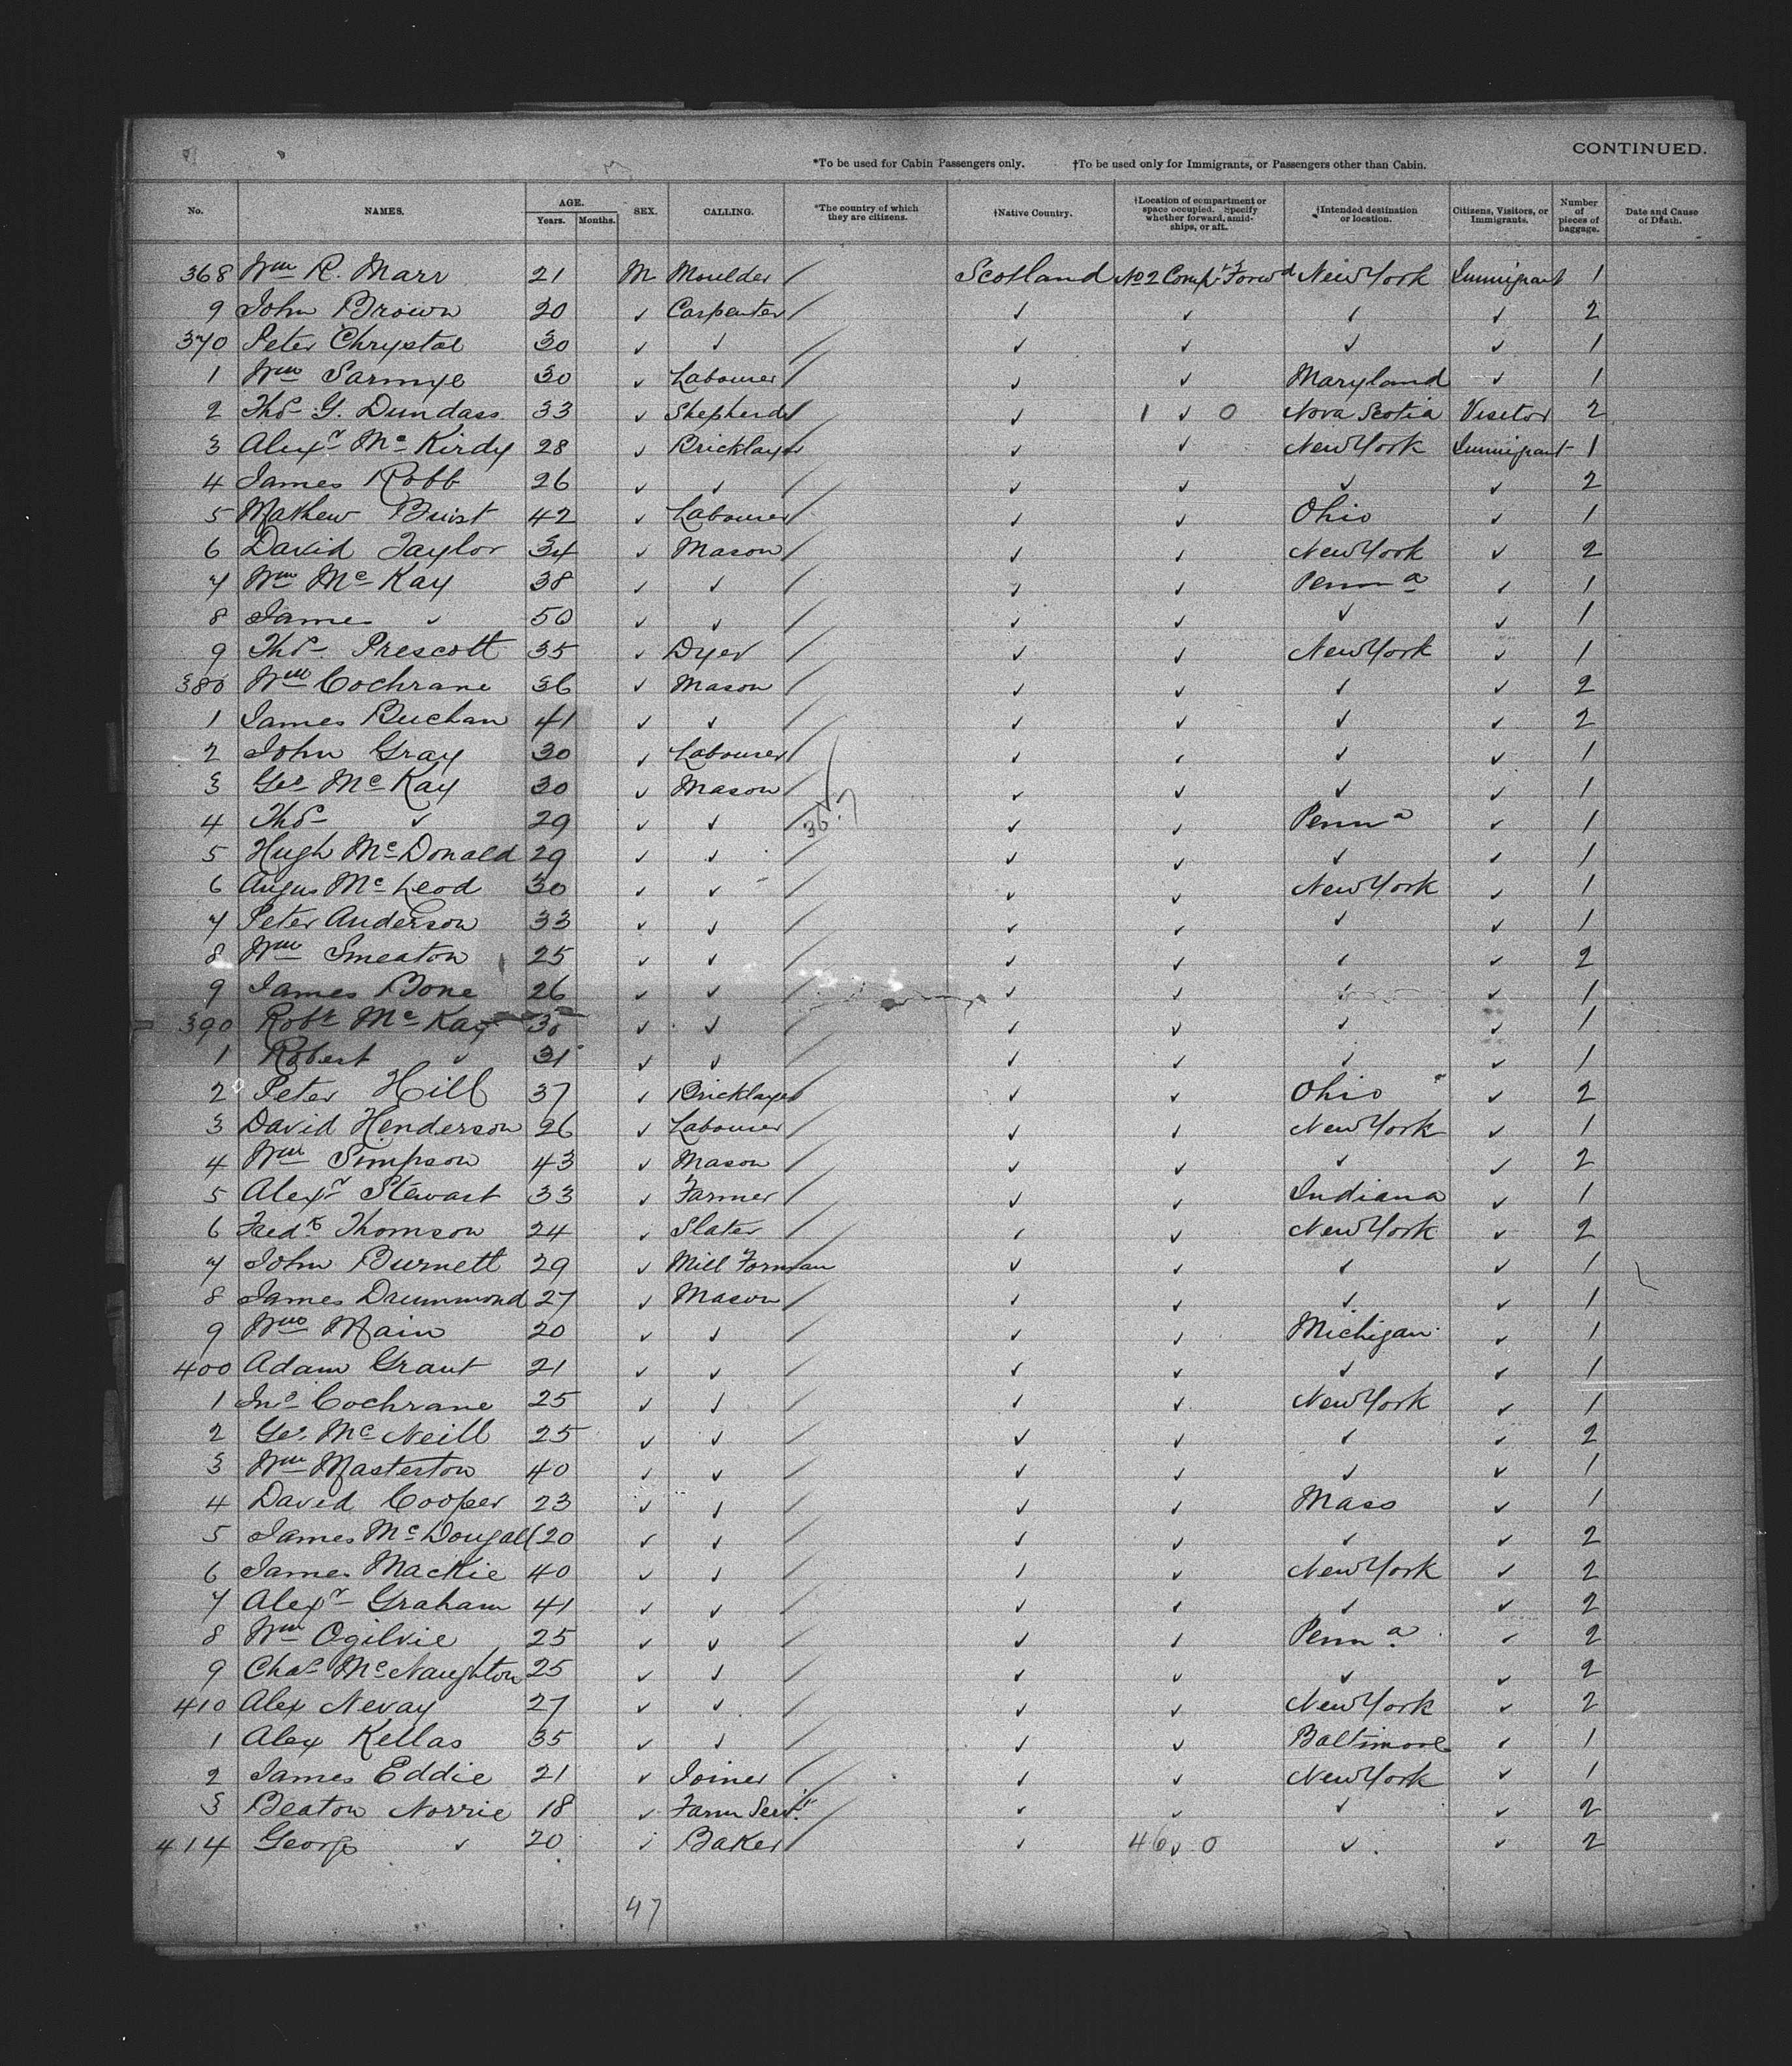 CONTINUED.
*To be used for Cabin Passengers only. †To be used only for Immigrants, or Passengers other than Cabin.
No. NAMES. AGE. Years. Months. SEX. CALLING. *The country of which they are citizens. †Native Country. †Location of compartment or space occupied. Specify whether forward, amidships, or aft. †Intended destination or location. Citizens, Visitors, or Immigrants. Number of pieces of baggage. Date and Cause of Death.
368 Wm R. Marr 21 M Moulder / Scotland No 2 Compt Forwd New York Immigrant 1
9 John Brown 20 ✓ Carpenter / ✓ ✓ ✓ ✓ 2
370 Peter Chrystal 30 ✓ ✓ / ✓ ✓ ✓ ✓ 1
1 Wm 30 ✓ Labourer / ✓ ✓ Maryland ✓ 1
2 Thos G. Dundass 33 ✓ Shepherd / ✓ 1 ✓ 0 Nova Scotia Visitor 2
3 Alexr Mc Kirdy 28 ✓ Bricklayer / ✓ ✓ New York Immigrant 1
4 James Robb 26 ✓ ✓ / ✓ ✓ ✓ ✓ 2
5 Mathew Buist 42 ✓ Labourer / ✓ ✓ Ohio ✓ 1
6 David Taylor 34 ✓ Mason / ✓ ✓ New York ✓ 2
7 Wm Mc Kay 38 ✓ ✓ / ✓ ✓ Penna ✓ 1
8 James ✓ 50 ✓ ✓ / ✓ ✓ ✓ ✓ 1
9 Thos Prescott 35 ✓ Dyer / ✓ ✓ New York ✓ 1
380 Wm Cochrane 36 ✓ Mason / ✓ ✓ ✓ ✓ 2
1 James Buchan 41 ✓ ✓ / ✓ ✓ ✓ ✓ 2
2 John Gray 30 ✓ Labourer / ✓ ✓ ✓ ✓ 1
3 Geo Mc Kay 30 ✓ Mason / ✓ ✓ ✓ ✓ 1
4 Thos ✓ 29 ✓ ✓ / ✓ ✓ Penna ✓ 1
5 Hugh Mc Donald 29 ✓ ✓ / ✓ ✓ ✓ ✓ 1
6 Angus Mc Leod 30 ✓ ✓ / ✓ ✓ New York ✓ 1
7 Peter Anderson 33 ✓ ✓ / ✓ ✓ ✓ ✓ 1
8 Wm Smeaton 25 ✓ ✓ / ✓ ✓ ✓ ✓ 2
9 James Bone 26 ✓ ✓ / ✓ ✓ ✓ ✓ 1
390 Robt Mc Kay 30 ✓ ✓ / ✓ ✓ ✓ ✓ 1
1 Robert ✓ 31 ✓ ✓ / ✓ ✓ ✓ ✓ 1
2 Peter Hill 37 ✓ Bricklayer / ✓ ✓ Ohio ✓ 2
3 David Henderson 26 ✓ Labourer / ✓ ✓ New York ✓ 1
4 Wm Simpson 43 ✓ Mason / ✓ ✓ ✓ ✓ 2
5 Alexr Stewart 33 ✓ Farmer / ✓ ✓ Indiana ✓ 1
6 Fredk Thomson 24 ✓ Slater / ✓ ✓ New York ✓ 2
7 John Burnett 29 ✓ Mill Forman ✓ ✓ ✓ ✓ 1
8 James Drummond 27 ✓ Mason / ✓ ✓ ✓ ✓ 1
9 Wm Main 20 ✓ ✓ / ✓ ✓ Michigan ✓ 1
400 Adam Grant 21 ✓ ✓ / ✓ ✓ ✓ ✓ 1
1 Jno Cochrane 25 ✓ ✓ / ✓ ✓ New York ✓ 1
2 Geo. Mc Neill 25 ✓ ✓ / ✓ ✓ ✓ ✓ 2
3 Wm Masterton 40 ✓ ✓ / ✓ ✓ ✓ ✓ 1
4 David Cooper 23 ✓ ✓ / ✓ ✓ Mass ✓ 1
5 James Mc Dougall 20 ✓ ✓ / ✓ ✓ ✓ ✓ 2
6 James Mackie 40 ✓ ✓ / ✓ ✓ New York ✓ 2
7 Alexr Graham 41 ✓ ✓ / ✓ ✓ ✓ ✓ 2
8 Wm Ogilvie 25 ✓ ✓ / ✓ ✓ Penna ✓ 2
9 Chas Mc Naughton 25 ✓ ✓ / ✓ ✓ ✓ ✓ 2
410 Alex Nevay 27 ✓ ✓ / ✓ ✓ New York ✓ 2
1 Alex Kellas 35 ✓ ✓ / ✓ ✓ Baltimore ✓ 1
2 James Eddie 21 ✓ Joiner / ✓ ✓ New York ✓ 1
3 Beaton Norrie 18 ✓ Farm Servt / ✓ ✓ ✓ ✓ 2
414 George ✓ 20 ✓ Baker / ✓ 46 ✓ 0 ✓ ✓ 2
47